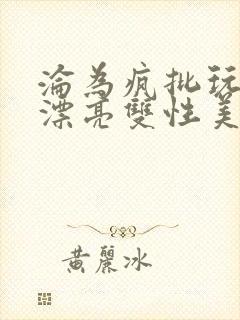 淪為瘋批玩
漂亮雙性美
黃麗冰